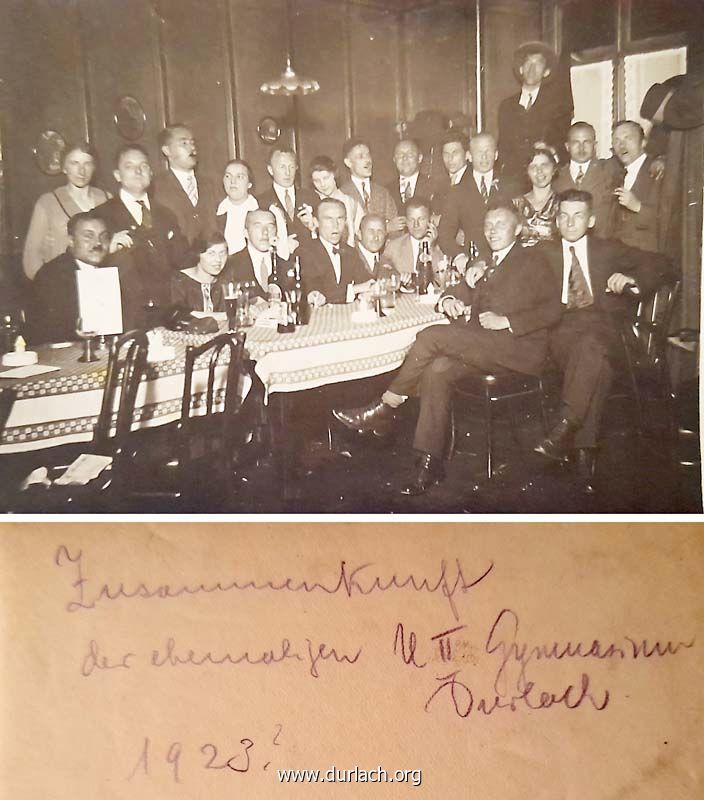 Zusammenkunft
der ehemaligen U II Gymnasium
Durlach
1923?
www.durlach.org